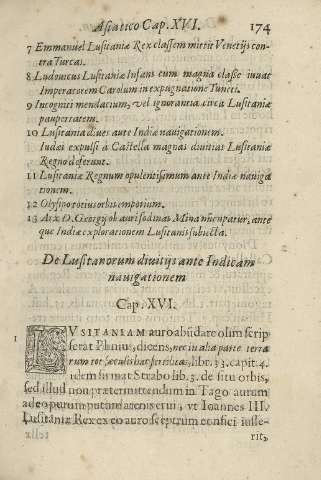 Asiatico Cap. XVI. 174
7 Emmanuel Lusitaniæ Rex classem mittit Venetijs con-
tra Turcas.
8 Ludouicus Lusitaniæ Infans cum magna classe iuuat
Imperatorem Carolum in expugnatione Tuneti.
9 Incogniti mendacium, vel ignorantia circa Lusitaniæ
paupertatem.
10 Lusitania diues ante Indiæ nauigationem.
Iudæi expulsi à Castella magnas diuitias Lusitaniæ
Regno deferunt.
11 Lusitaniæ Regnum opulentissimum ante Indiæ nauiga
tionem.
12 Olysipo totius orbis emporium.
13 Arx D. Georgij ob auri fodinas Mina nūcupatur, ante
que Indiæ explorationem Lusitanis subiecta.
De Lusitanorum diuitijs ante Indicam
nauigationem
Cap. XVI.
1 LVSITANIAM auro abūdare olim scrip
serat Plinius, dicens, nec in alia parte terra
rum tot sæculis hæc fertilitas, libr. 33. capit. 4.
idem firmat Strabo lib. 3. de situ orbis,
sed illud non prætermittendum in Tago aurum
adeo purum putum ac enixerui, vt Ioannes III.
Lusitaniæ Rex ex eo auro sceptrum confici iusse-
rit,